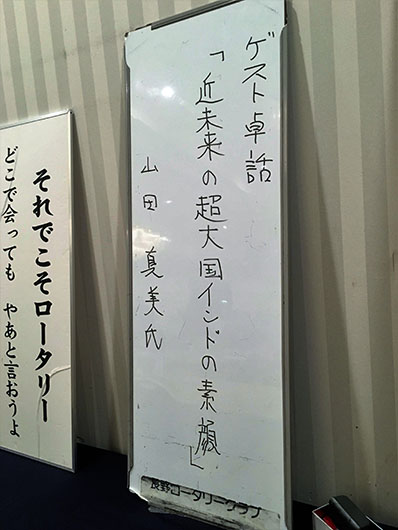 ゲスト卓話
「近未来の超大国インドの素顔」
山田真美氏
長野ロータリークラブ
それでこそロータリー
どこで会っても やあと言おうよ